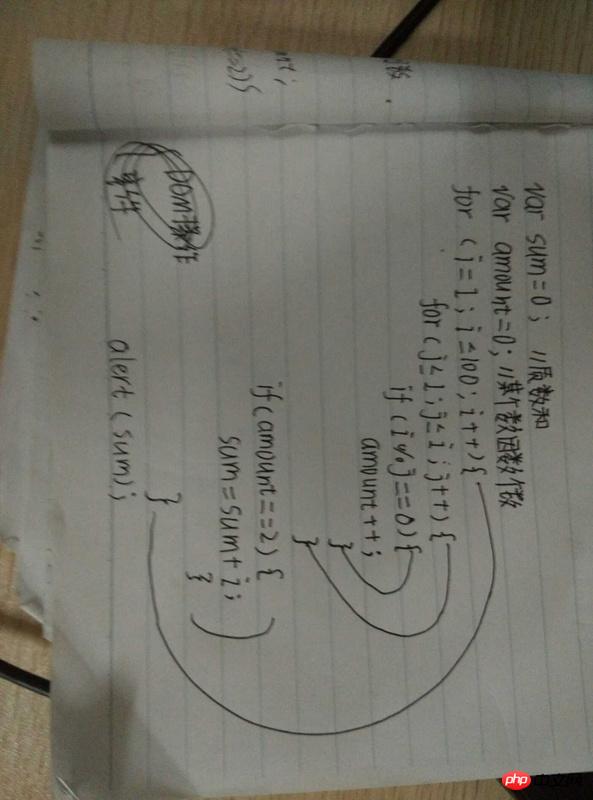 var sum=0; //质数和
var amount=0; //某个数因数个数
for (i=1; i≤100; i++){
for(j≤1; j≤i; j++){
if(i%j==0){
amount++;
}
}
if(amount==2){
sum=sum+i;
}
}
alert(sum);
DOM操作
事件
数
nt;
php